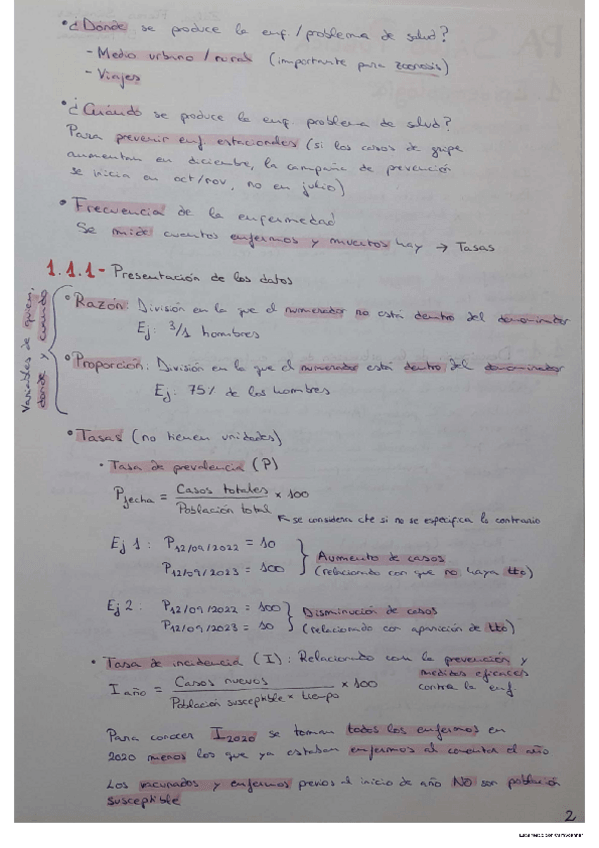 • ¿Dónde se produce la enf./problema de salud?
- Medio urbano / rural (importante para zoonosis)
- Viajes
• ¿Cuándo se produce la enf. problema de salud?
Para prevenir enf. estacionales (si los casos de gripe
aumentan en diciembre, la campaña de prevención
se inicia en oct/nov, no en julio)
• Frecuencia de la enfermedad
Se mide cuantos enfermos y muertos hay → Tasas
1.1.1- Presentación de los datos
Variables de quien, donde y cuando
• Razón: División en la que el numerador no está dentro del denominador
Ej: 3/1 hombres
• Proporción: División en la que el numerador está dentro del denominador
Ej: 75% de los hombres
• Tasas (no tienen unidades)
• Tasa de prevalencia (P)
P fecha = Casos totales / Población total × 100
↖ se considera cte si no se especifica lo contrario
Ej 1: P 12/09/2022 = 10 } Aumento de casos
P 12/09/2023 = 100 (relacionado con que no haya tto)
Ej 2. P 12/09/2022 = 100 } Disminución de casos
P 12/09/2023 = 10 (relacionado con aparición de tto)
• Tasa de incidencia (I): Relacionado con la prevención y
medidas eficaces
contra la enf.
I año = Casos nuevos / Población susceptible × tiempo × 100
Para conocer I2020 se toman todos los enfermos en
2020 menos los que ya estaban enfermos al comenzar el año
Los vacunados y enfermos previos al inicio de año NO son población
susceptible
2